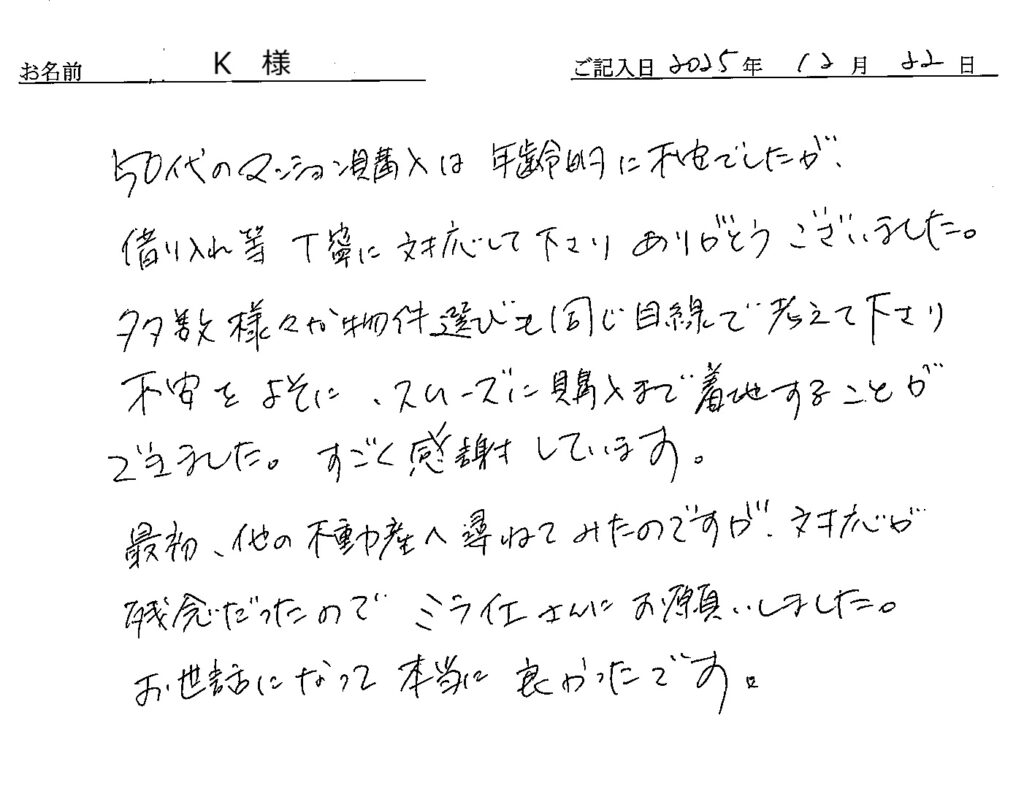 お名前 K 様 ご記入日 2025年 12月 22日
50代のマンション購入は 年齢的に不安でしたが、
借り入れ等 丁寧に 対応して下さり ありがとうございました。
多数様々な物件選びも同じ目線で考えて下さり
不安をよそに、スムーズに購入まで着地することが
できました。すごく感謝しています。
最初、他の不動産へ尋ねてみたのですが、対応が
残念だったので ミライエさんに お願いしました。
お世話になって 本当に 良かったです。